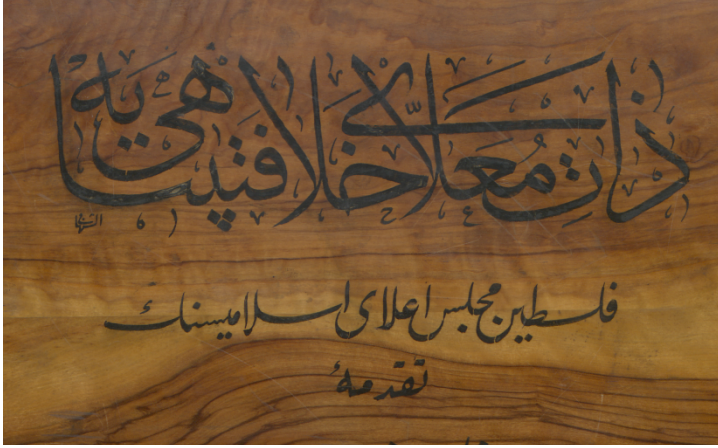 ذات معلای خلافتپناهی یه
فلسطین مجلس اعلای اسلامیسنك
تقدمهٔ